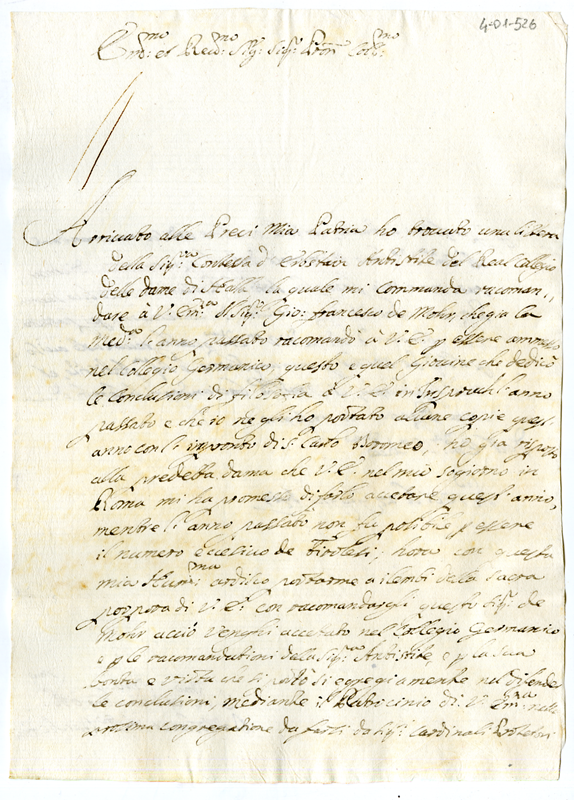 4-01-526
Em:mo et Rev:mo Sig:r Sig:r P̃ron Col:mo
Arrivato alle Preci Mia Patria ho trovato una litera
della Sig:ra Contessa d' Antistite del Real Collegio
delle dame di Halla la quale mi Commanda racoman
dare à V. Em:za il Sig:r Gio: francesco de Mohr, che gia la
Med:ma l'anno passato racomandò à V. E. p essere
nel Collegio Germanico, questo e quel Giovine che dedicò
le Conclusioni di filosofia à V. E. in Inspruch l'anno
passato e che io ne gli ho portato alcune copie quest
anno con l'impronto di S. Carlo Boromeo, ho gia risposto
alla predetta dama che V. E. nel mio sogiorno in
Roma mi ha promesso di farlo accetare quest'anno,
mentre l'anno passato non fu posibile p essere
il numero ecesivo de Tirolesi; hora con questa
mia Hum:ma ardisco portarme a i lembi della sacra
porpora di V. E. con racomandargli questo Sig:r de
Mohr acciò venghi accetato nel Collegio Germanico
e p le racomandationi della Sig:ra Antistite, e p la sua
bontà e virtù che si portò si egregiamente nel difende
le conclusioni, mediante il Patrocinio di V. Em:za nella
prosima congregatione da farsi da Sig:ri Cardinali Protetori